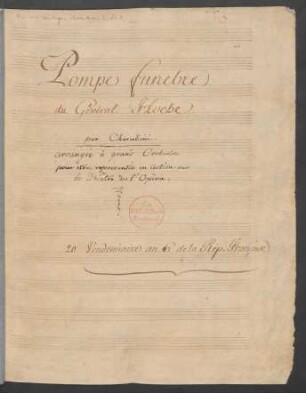 Pompe funebre
du Général Hoche
par Cherubini
arrangée à grand Orchestre
pour être représentée en action sur
le Théâtre de l'Opéra.
20 Vendemiaire an 6.e de la Rép. Française